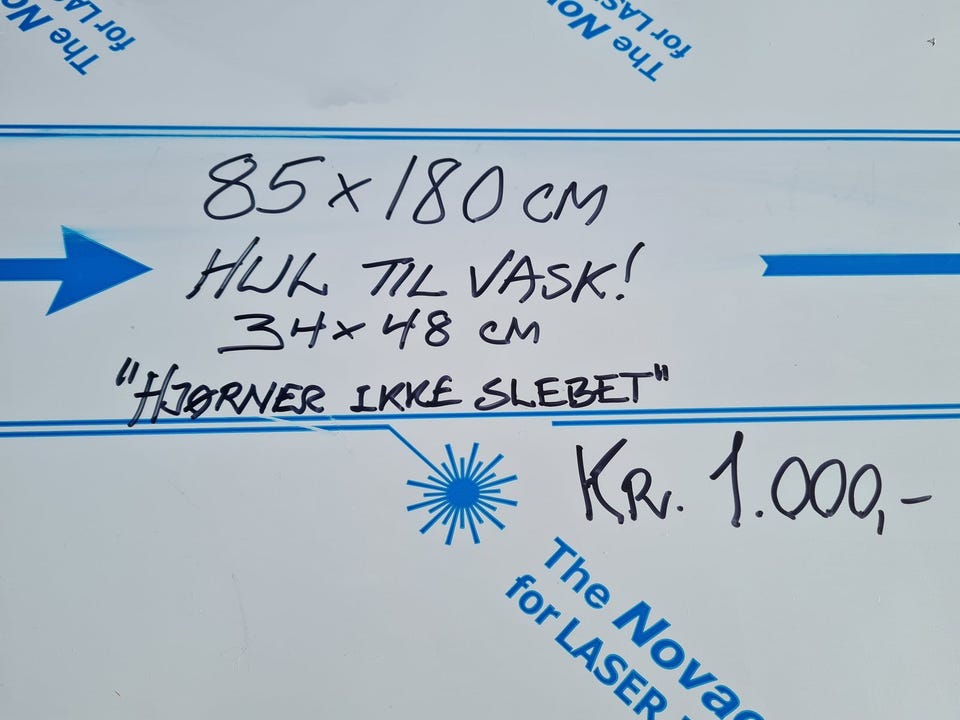 The No
for LA
The No
for LAS
85 x 180 CM
HUL TIL VASK!
34 x 48 CM
"HJØRNER IKKE SLEBET"
KR. 1.000,-
The Novac
for LASER